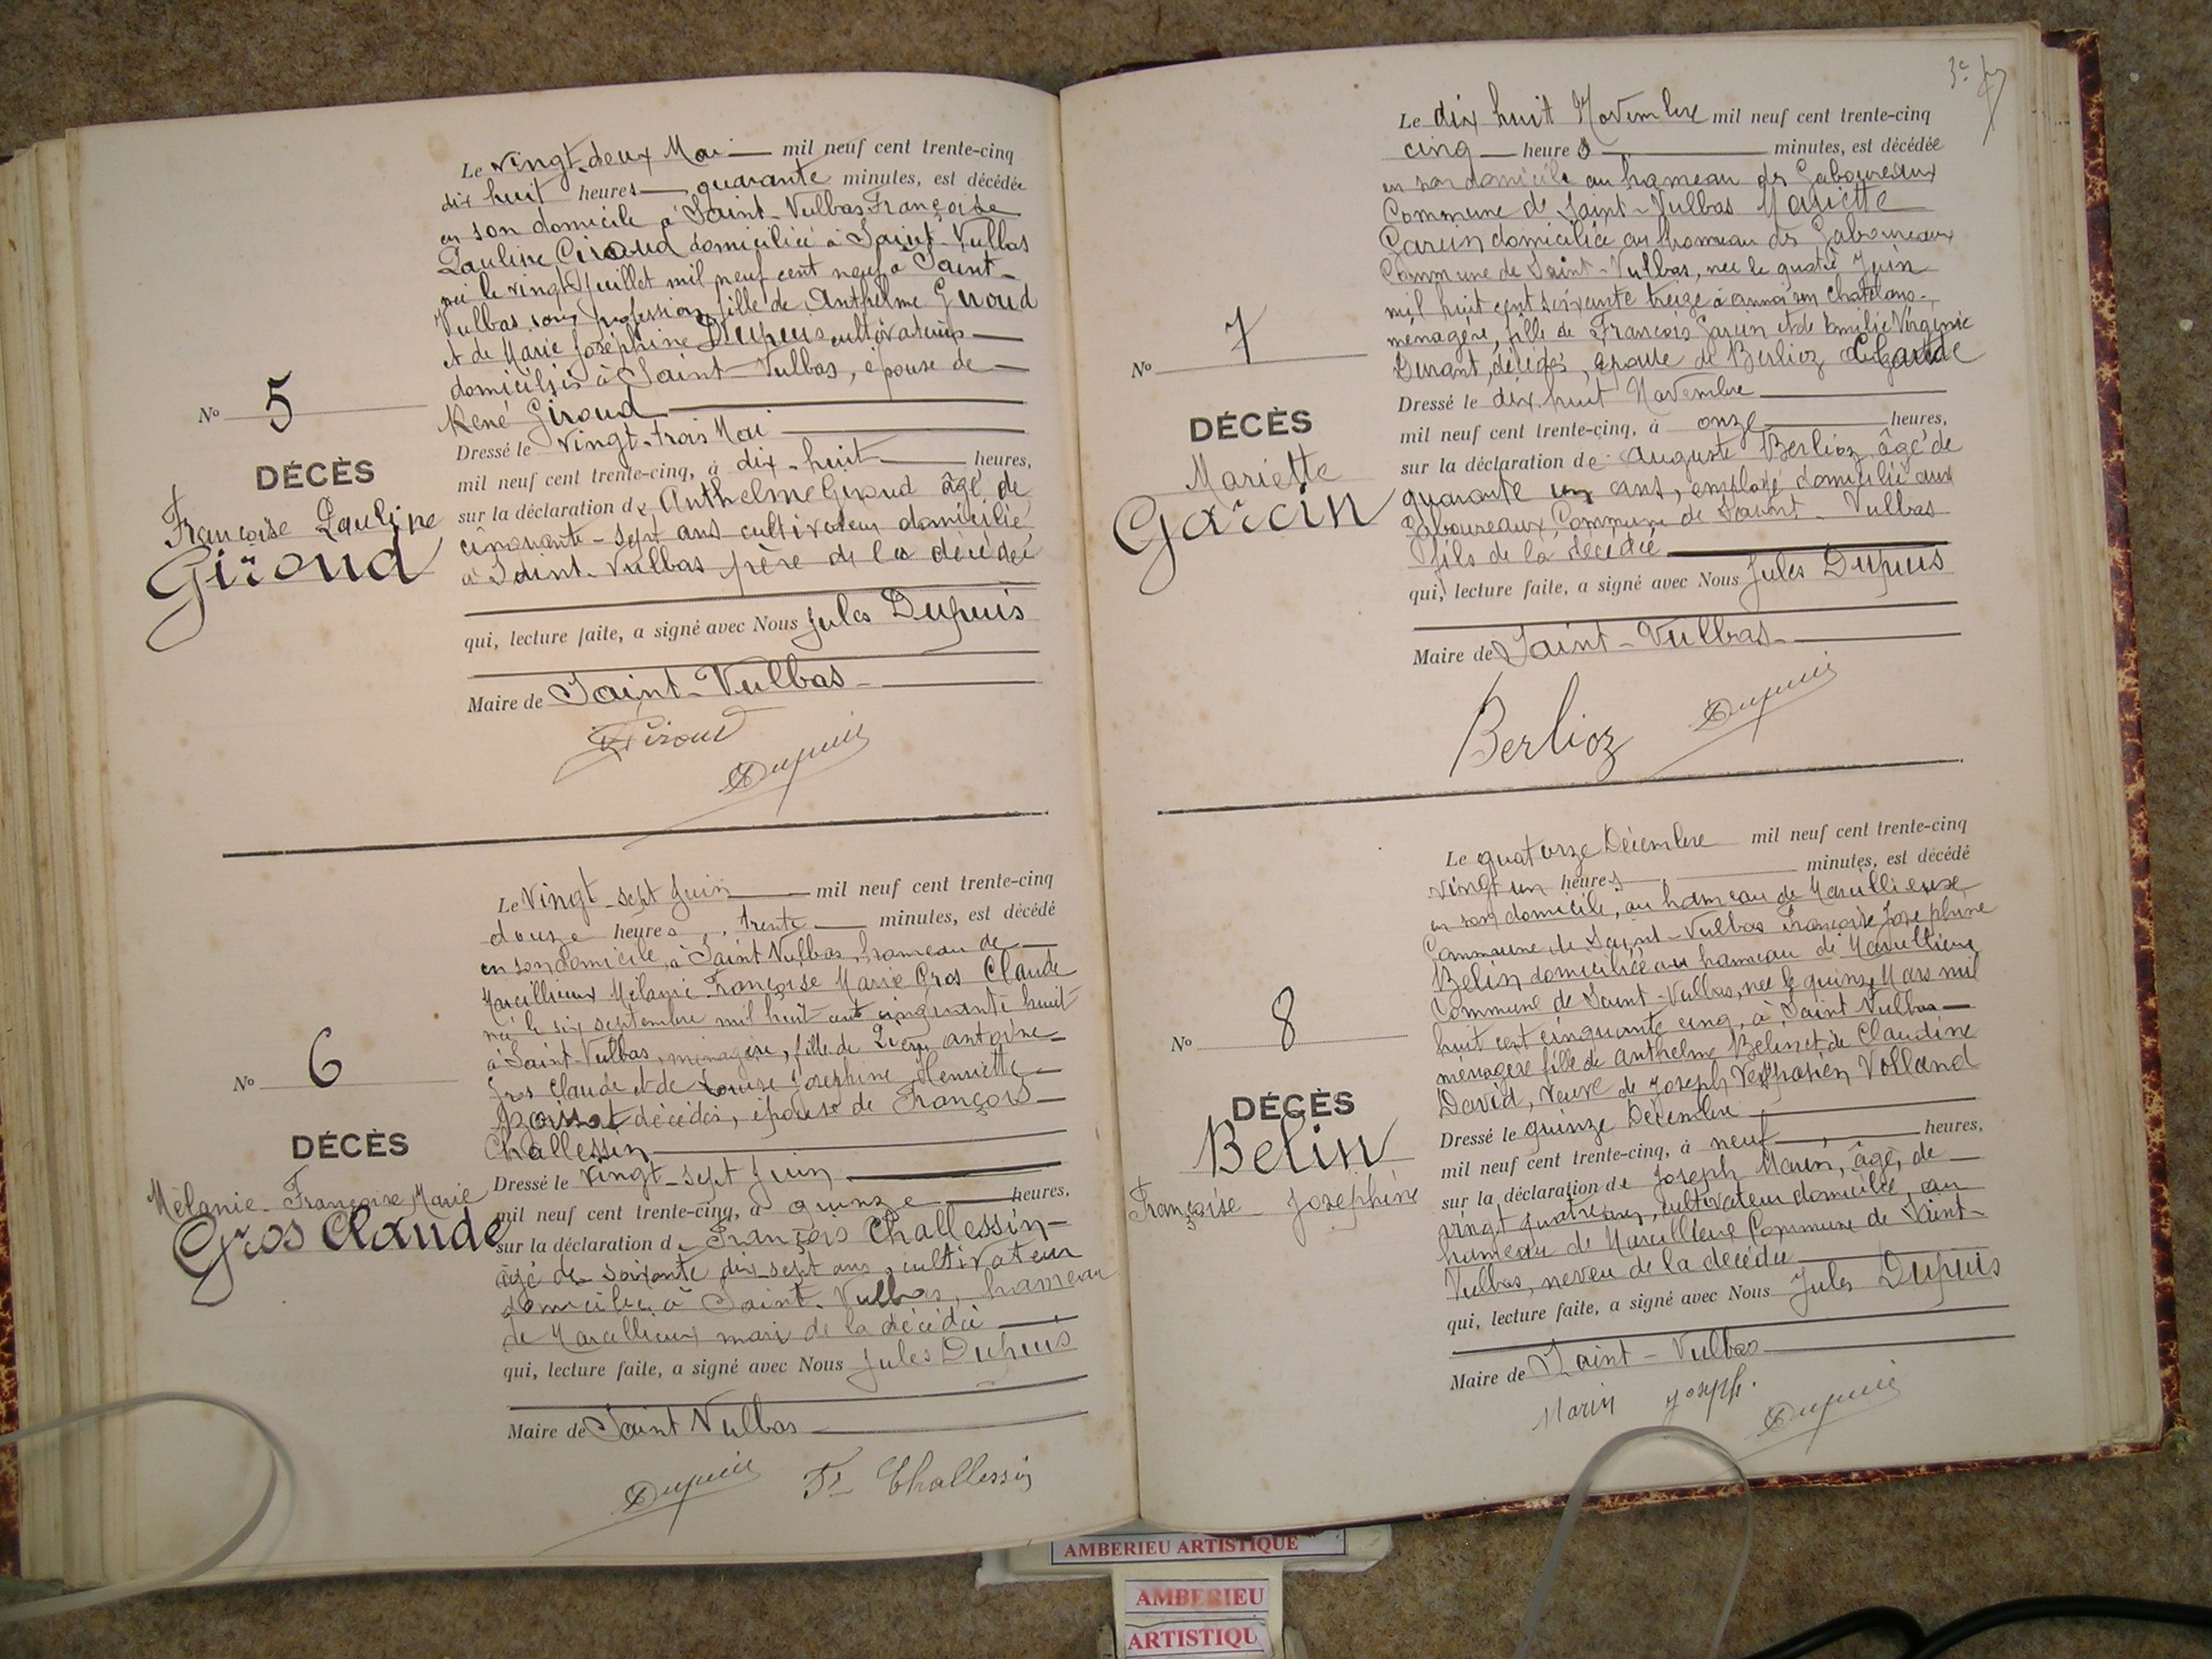 Le vingt-deux Mai mil neuf cent trente-cinq
dix huit heures quarante minutes, est décédée
en son domicile à Saint-Vulbas Françoise
Pauline Giroud domiciliée à Saint-Vulbas
née le vingt Juillet mil neuf cent neuf à Saint-
Vulbas sans profession, fille de Anthelme Giroud
et de Marie Joséphine Dupuis cultivateurs
domiciliés à Saint-Vulbas, épouse de
René Giroud
No 5
DÉCÈS
Françoise Pauline
Giroud
Dressé le vingt-trois Mai
mil neuf cent trente-cinq, à dix-huit heures,
sur la déclaration de Anthelme Giroud âgé de
cinquante-sept ans cultivateur domicilié
à Saint-Vulbas père de la décédée
qui, lecture faite, a signé avec Nous Jules Dupuis
Maire de Saint-Vulbas
Giroud
Dupuis
Le Vingt-sept Juin mil neuf cent trente-cinq
douze heures, trente minutes, est décédé
en son domicile, à Saint Vulbas, hameau de
Marcillieux Mélanie Françoise Marie Gros Claude
née le six septembre mil huit cent cinquante huit
à Saint-Vulbas, ménagère, fille de antoine
Gros Claude et de Louise Joséphine Henriette
décédés, épouse de François
Challessin
No 6
DÉCÈS
Mélanie-Françoise Marie
Gros Claude
Dressé le Vingt-sept Juin
mil neuf cent trente-cinq, à quinze heures,
sur la déclaration de François Challessin
âgé de soixante dix-sept ans, cultivateur
domicilié à Saint-Vulbas, hameau
de Marcillieux mari de la décédée
qui, lecture faite, a signé avec Nous Jules Dupuis
Maire de Saint Vulbas
Dupuis Fs Challessin
3e
Le dix huit Novembre mil neuf cent trente-cinq
cinq heures minutes, est décédée
en son domicile au hameau des Gaboureaux
Commune de Saint-Vulbas Mariette
Garcin domiciliée au hameau des Gaboureaux
Commune de Saint-Vulbas, née le quatre Juin
mil huit cent soixante treize à annoisin Chatelans
ménagère, fille de François Garcin et de Emilie Virginie
Durant, décédés, épouse de Berlioz Claude
No 7
DÉCÈS
Mariette
Garcin
Dressé le dix huit Novembre
mil neuf cent trente-cinq, à onze heures,
sur la déclaration de Auguste Berlioz âgé de
quarante un ans, employé domicilié aux
Gaboureaux Commune de Saint-Vulbas
fils de la décédée
qui, lecture faite, a signé avec Nous Jules Dupuis
Maire de Saint-Vulbas
Berlioz Dupuis
Le quatorze Décembre mil neuf cent trente-cinq
vingt un heures minutes, est décédé
en son domicile, au hameau de Marcillieux
Commune de Saint-Vulbas Françoise Joséphine
Belin domiciliée au hameau de Marcillieux
Commune de Saint-Vulbas, née le quinze Mars mil
huit cent cinquante cinq, à Saint Vulbas
ménagère fille de Anthelme Belin et de Claudine
David, veuve de Joseph Vespasien Volland
No 8
DÉCÈS
Belin
Françoise-Joséphine
Dressé le quinze Décembre
mil neuf cent trente-cinq, à neuf heures,
sur la déclaration de Joseph Marin, âgé, de
vingt quatre ans, cultivateur domicilié, au
hameau de Marcillieux Commune de Saint-
Vulbas, neveu de la décédée
qui, lecture faite, a signé avec Nous Jules Dupuis
Maire de Saint-Vulbas
Marin Joseph.
Dupuis
AMBERIEU ARTISTIQUE
AMBERIEU
ARTISTIQU